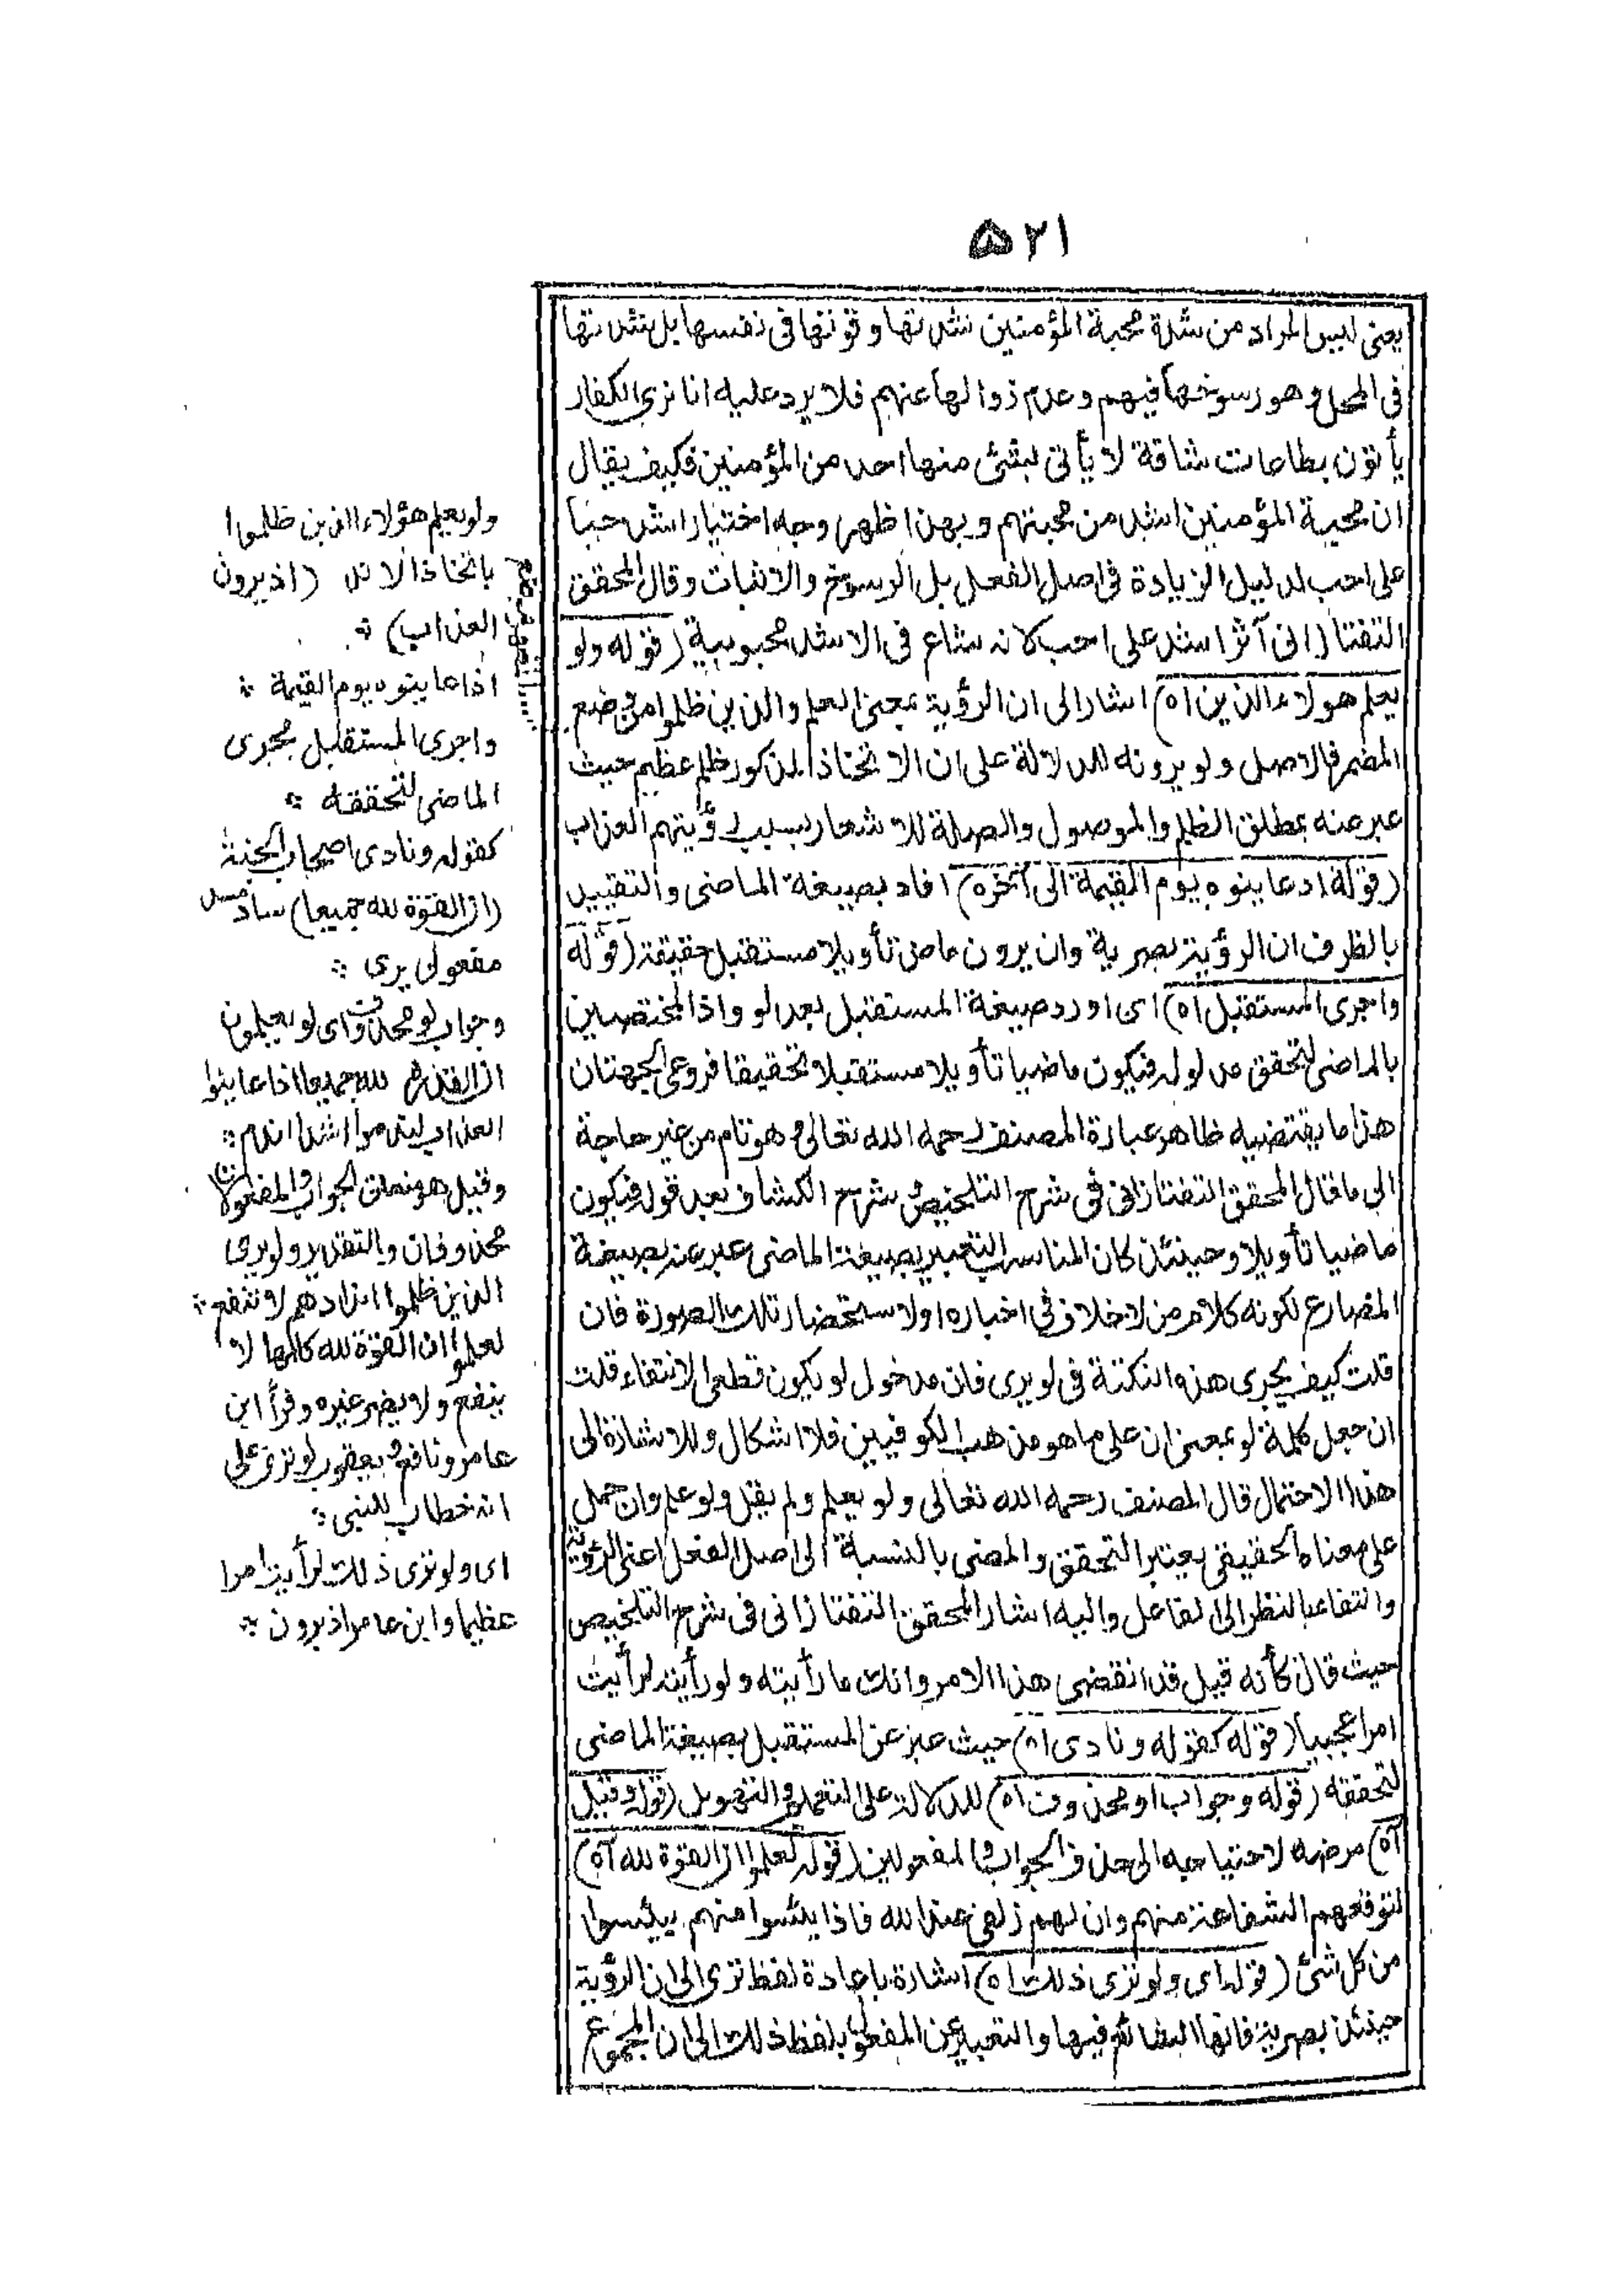 ۵۲۱
يعنى ليس المراد من شدة محبة المؤمنين شدتها وقوتها فى نفسها بل شدتها
فى المحل وهو رسوخها فيهم وعدم زوالها عنهم فلا يرد عليه انا نرى الكفار
يأتون بطاعات شاقة لا يأتى بشئ منها احد من المؤمنين فكيف يقال
ان محبة المؤمنين اشد من محبتهم وبهذا ظهر وجه اختيار اشد حبا
على احب لدليل الزيادة فى اصل الفعل بل الرسوخ والاثبات وقال المحقق
التفتازانى آثر اشد على احب لانه شاع فى الاشد محبوبية (قوله ولو
يعلم هولاء الذين اه) اشار الى ان الرؤية بمعنى العلم والذين ظلموا من وضع
المضمر فالاصل ولو يرونه للدلالة على ان الاتخاذ المذكور ظلم عظيم حيث
عبر عنه بمطلق الظلم والموصول والصلة للاشعار بسبب رؤيتهم العذاب
(قوله اذ عاينوه يوم القيمة الى آخره) افاد بصيغة الماضى والتقييد
بالظرف ان الرؤية بصرية وان يرون ماض تأويلا مستقبل حقيقة (قوله
واجرى المستقبل اه) اى اورد صيغة المستقبل بعد لو واذ المختصين
بالماضى لتحقق مدلوله فيكون ماضيا تأويلا مستقبلا تحقيقا فروعى الجهتان
هذا ما يقتضيه ظاهر عبارة المصنف رحمه الله تعالى وهو تام من غير حاجة
الى ما قال المحقق التفتازانى فى شرح التلخيص وشرح الكشاف بعد قوله فيكون
ماضيا تأويلا وحينئذ كان المناسب التعبير بصيغة الماضى عبر عنه بصيغة
المضارع لكونه كلام من لا خلاف فى اخباره اولاستحضار تلك الصورة فان
قلت كيف يجرى هذه النكتة فى لو يرى فان مدخول لو يكون قطعى الانتفاء قلت
ان جعل كلمة لو بمعنى ان على ما هو مذهب الكوفيين فلا اشكال وللاشارة الى
هذا الاحتمال قال المصنف رحمه الله تعالى ولو يعلم ولم يقل ولو علم وان حمل
على معناه الحقيقى يعتبر التحقق والمضى بالنسبة الى اصل الفعل اعنى الرؤية
وانتفاء بالنظر الى الفاعل واليه اشار المحقق التفتازانى فى شرح التلخيص
حيث قال كأنه قيل قد انقضى هذا الامر وانك ما رأيته ولو رأيته لرأيت
امرا عجيبا (قوله كقوله ونادى اه) حيث عبر عن المستقبل بصيغة الماضى
لتحققه (قوله وجواب لو محذوف اه) للدلالة على التعميم والتهويل (قوله وقيل
آه) مرضه لاحتياجه الى حذف الجواب والمفعولين (قوله لعلموا ان القوة لله آه)
لتوقعهم الشفاعة منهم وان لهم زلفى عند الله فاذا يئسوا منهم ييئسوا
من كل شئ (قوله اى ولو ترى ذلك اه) اشارة باعادة لفظ ترى الى ان الرؤية
حينئذ بصرية فانها الشائع فيها والتعبير عن المفعول بلفظ ذلك الى ان المجموع
ولو يعلم هؤلاء الذين ظلموا
باتخاذ الانداد (اذ يرون
العذاب)
اذا عاينوه يوم القيمة
واجرى المستقبل مجرى
الماضى لتحققه
كقوله ونادى اصحاب الجنة
(ان القوة لله جميعا) ساد مسد
مفعولى يرى
وجواب لو محذوف اى لو يعلمون
ان القدرة لله جميعا اذا عاينوا
العذاب لندموا اشد الندم
وقيل هو متعلق الجواب والمفعولان
محذوفان والتقدير ولو يرى
الذين ظلموا اندادهم لا تنفع
لعلموا ان القوة لله كلها لا
ينفع ولا يضر غيره وقرأ ابن
عامر ونافع ويعقوب لو ترى على
انه خطاب للنبى
اى ولو ترى ذلك لرأيت امرا
عظيما وابن عامر اذ يرون